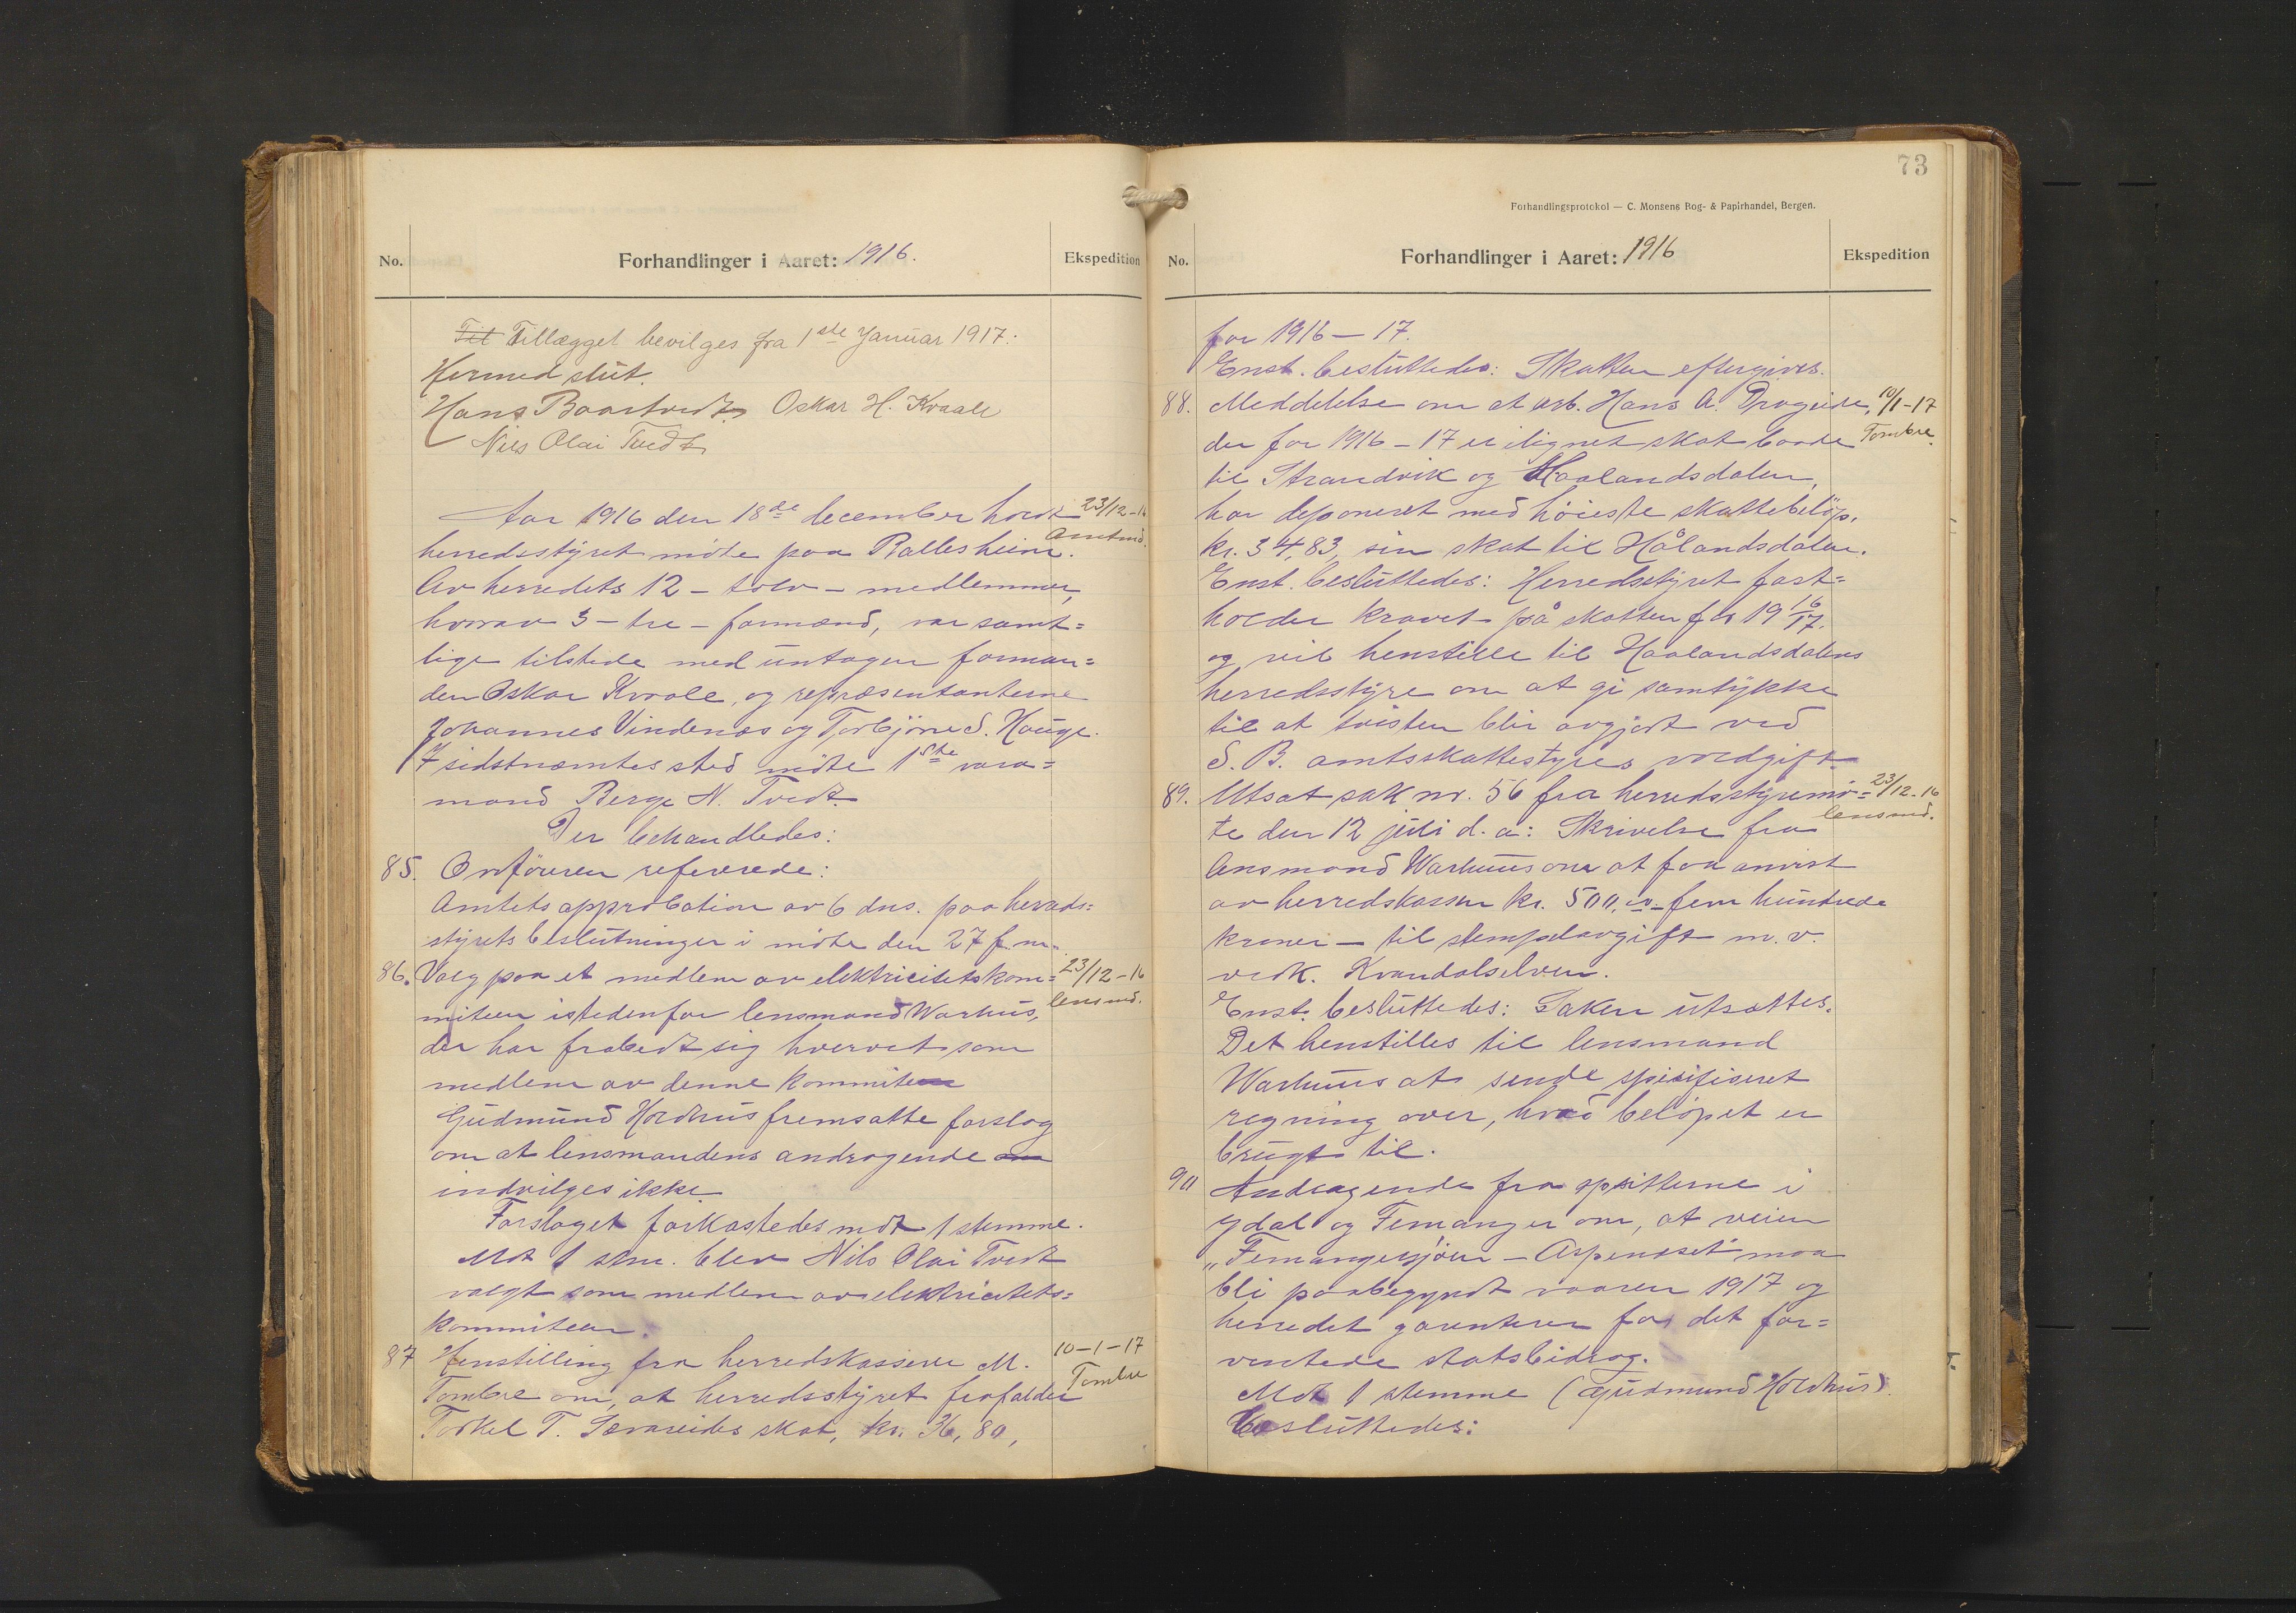 No.
Forhandlinger i Aaret: 1916.
Ekspedition
Til Tillægget bevilges fra 1ste Januar 1917.
Hermed slut.
Hans Baartvedt Oskar H. Kvaale
Nils Olai Tvedt
Aar 1916 den 18de december holdt 23/12-16
herredsstyret möte paa Ballesheim. Amtmd.
Av herredets 12 - tolv - medlemmer,
hvorav 3 - tre - formænd, var samt=
lige tilstede med untagen forman=
den Oskar Kvale, og repræsentanterne
Johannes Vindenæs og Torbjörn S. Hauge.
I sidstnæmtes sted möte 1ste vara=
mand Berge N. Tvedt.
Der behandledes:
85. Ordföreren refererede:
Amtets approbation av 6 dns. paa herreds=
styrets beslutninger i möte den 27 f.m.
86. Valg paa et medlem av elektricitetskom= 23/12-16
miteen istedenfor lensmand Warhus, lensmd.
der har frabedt sig hvervet som
medlem av denne kommite
Gudmund Holdhus fremsatte forslag
om at lensmandens andragende om
indvilges ikke.
Forslaget forkastedes mot 1 stemme.
Mot 1 stm. blev Nils Olai Tvedt
valgt som medlem av elektricitets=
kommiteen.
87 Henstilling fra herredskasserer M. 10-1-17
Tombre om, at herredsstyret frafalder Tombre
Torkel T. Sævareides skat, kr. 36,80,
73
Forhandlingsprotokol — C. Monsens Bog- & Papirhandel, Bergen.
No.
Forhandlinger i Aaret: 1916
Ekspedition
for 1916-17.
Enst. besluttedes: Skatten eftergives.
88. Meddelelse om at arb. Hans A. Drageide, 10/1-17
der for 1916-17 er ilignet skat baade Tombre.
til Strandvik og Haalandsdalen,
har deponeret med höieste skattebelöp,
kr. 34,83, sin skat til Hålandsdalen.
Enst. besluttedes: Herredsstyret fast=
holder kravet på skatten for 19 16/17.
og vil henstille til Haalandsdalens
herredsstyre om at gi samtykke
til at tvisten blir avgjort ved
S. B. amtsskattestyres voldgift.
89. Utsat sak nr. 56 fra herredsstyremö= 23/12-16
te den 12 juli d. a: Skrivelse fra lensmd.
lensmand Warhuus om at faa anvist
av herredskassen kr. 500, - fem hundrede
kroner - til stempelavgift m. v.
vedk. Kvandalselven.
Enst. besluttedes: Saken utsættes.
Det henstilles til lensmand
Warhuus at sende spesifiseret
regning over, hvad belöpet er
brugt til.
90 Andragende fra opsitterne i
Ydal og Femanger om, at veien
„Femangersjöen - Aspenæset" maa
bli paabegyndt vaaren 1917 og
herredet garenterer for det for=
ventede statsbidrag.
Mot 1 stemme (Gudmund Holdhus)
besluttedes: